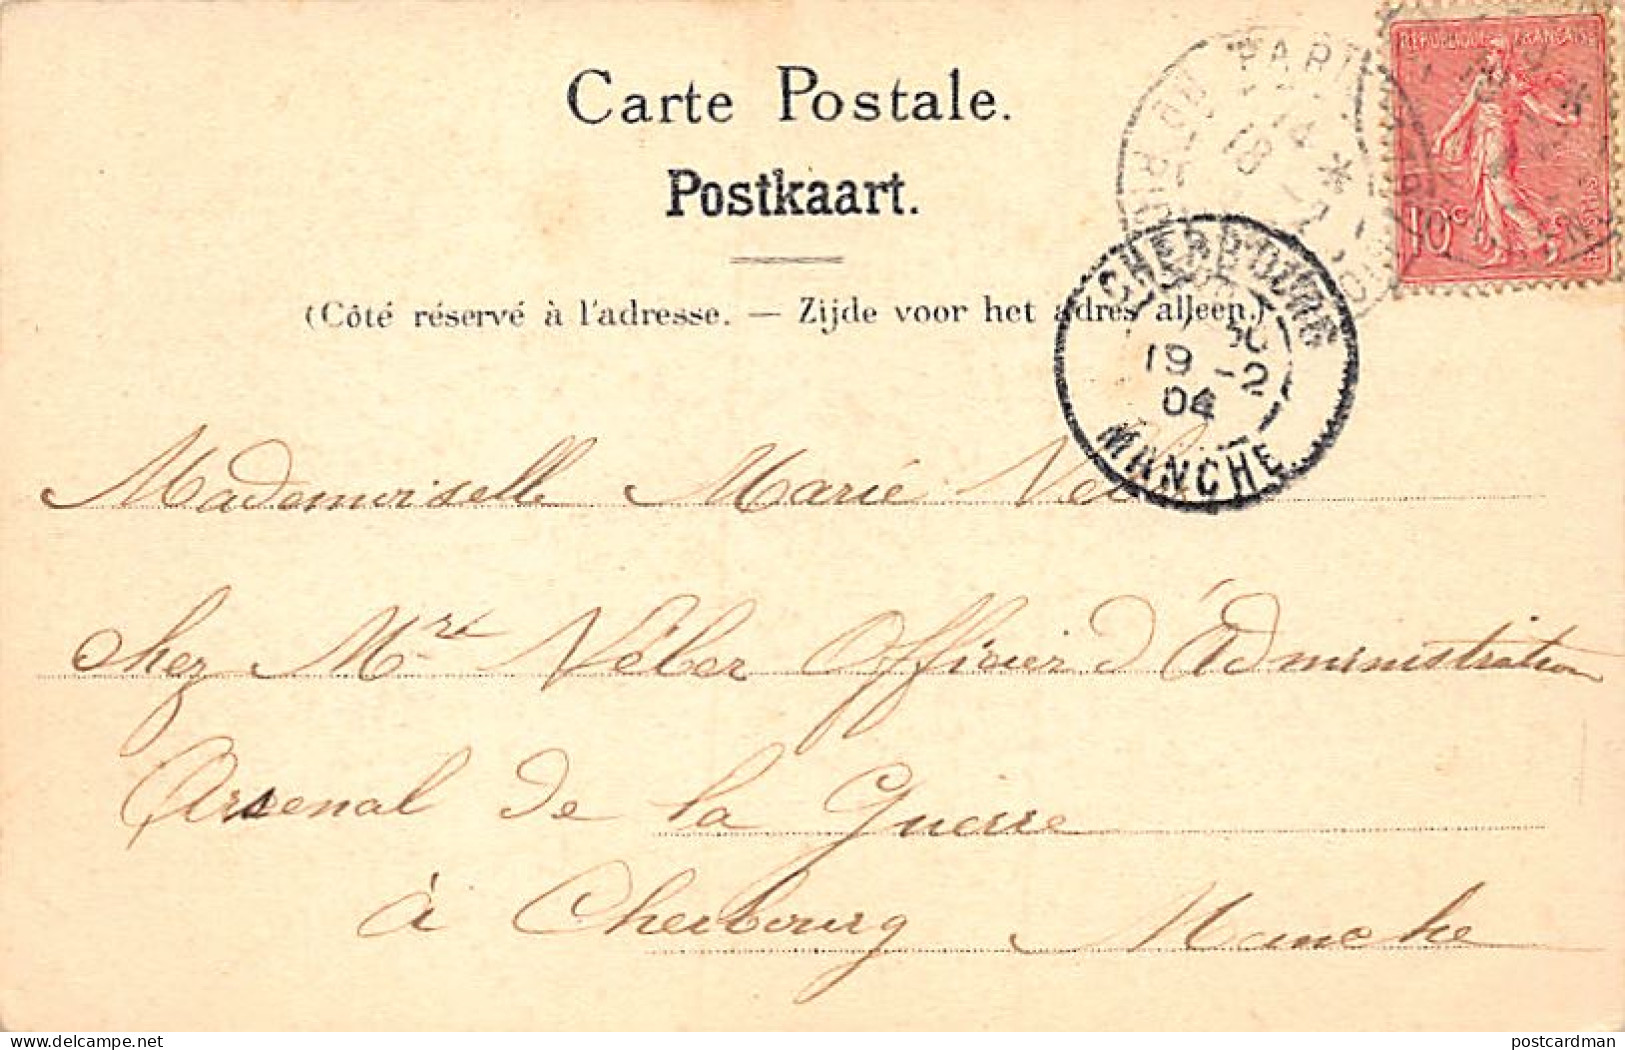 Carte Postale.
Postkaart.
(Côté réservé à l'adresse. — Zijde voor het adres alleen.)
RÉPUBLIQUE FRANÇAISE
10 c
PARIS
18
CHERBOURG
19 -2
04
MANCHE
Mademoiselle Marie
chez Mre Véber Officier d'Administration
Arsenal de la Guerre
à Cherbourg Manche
postcardman